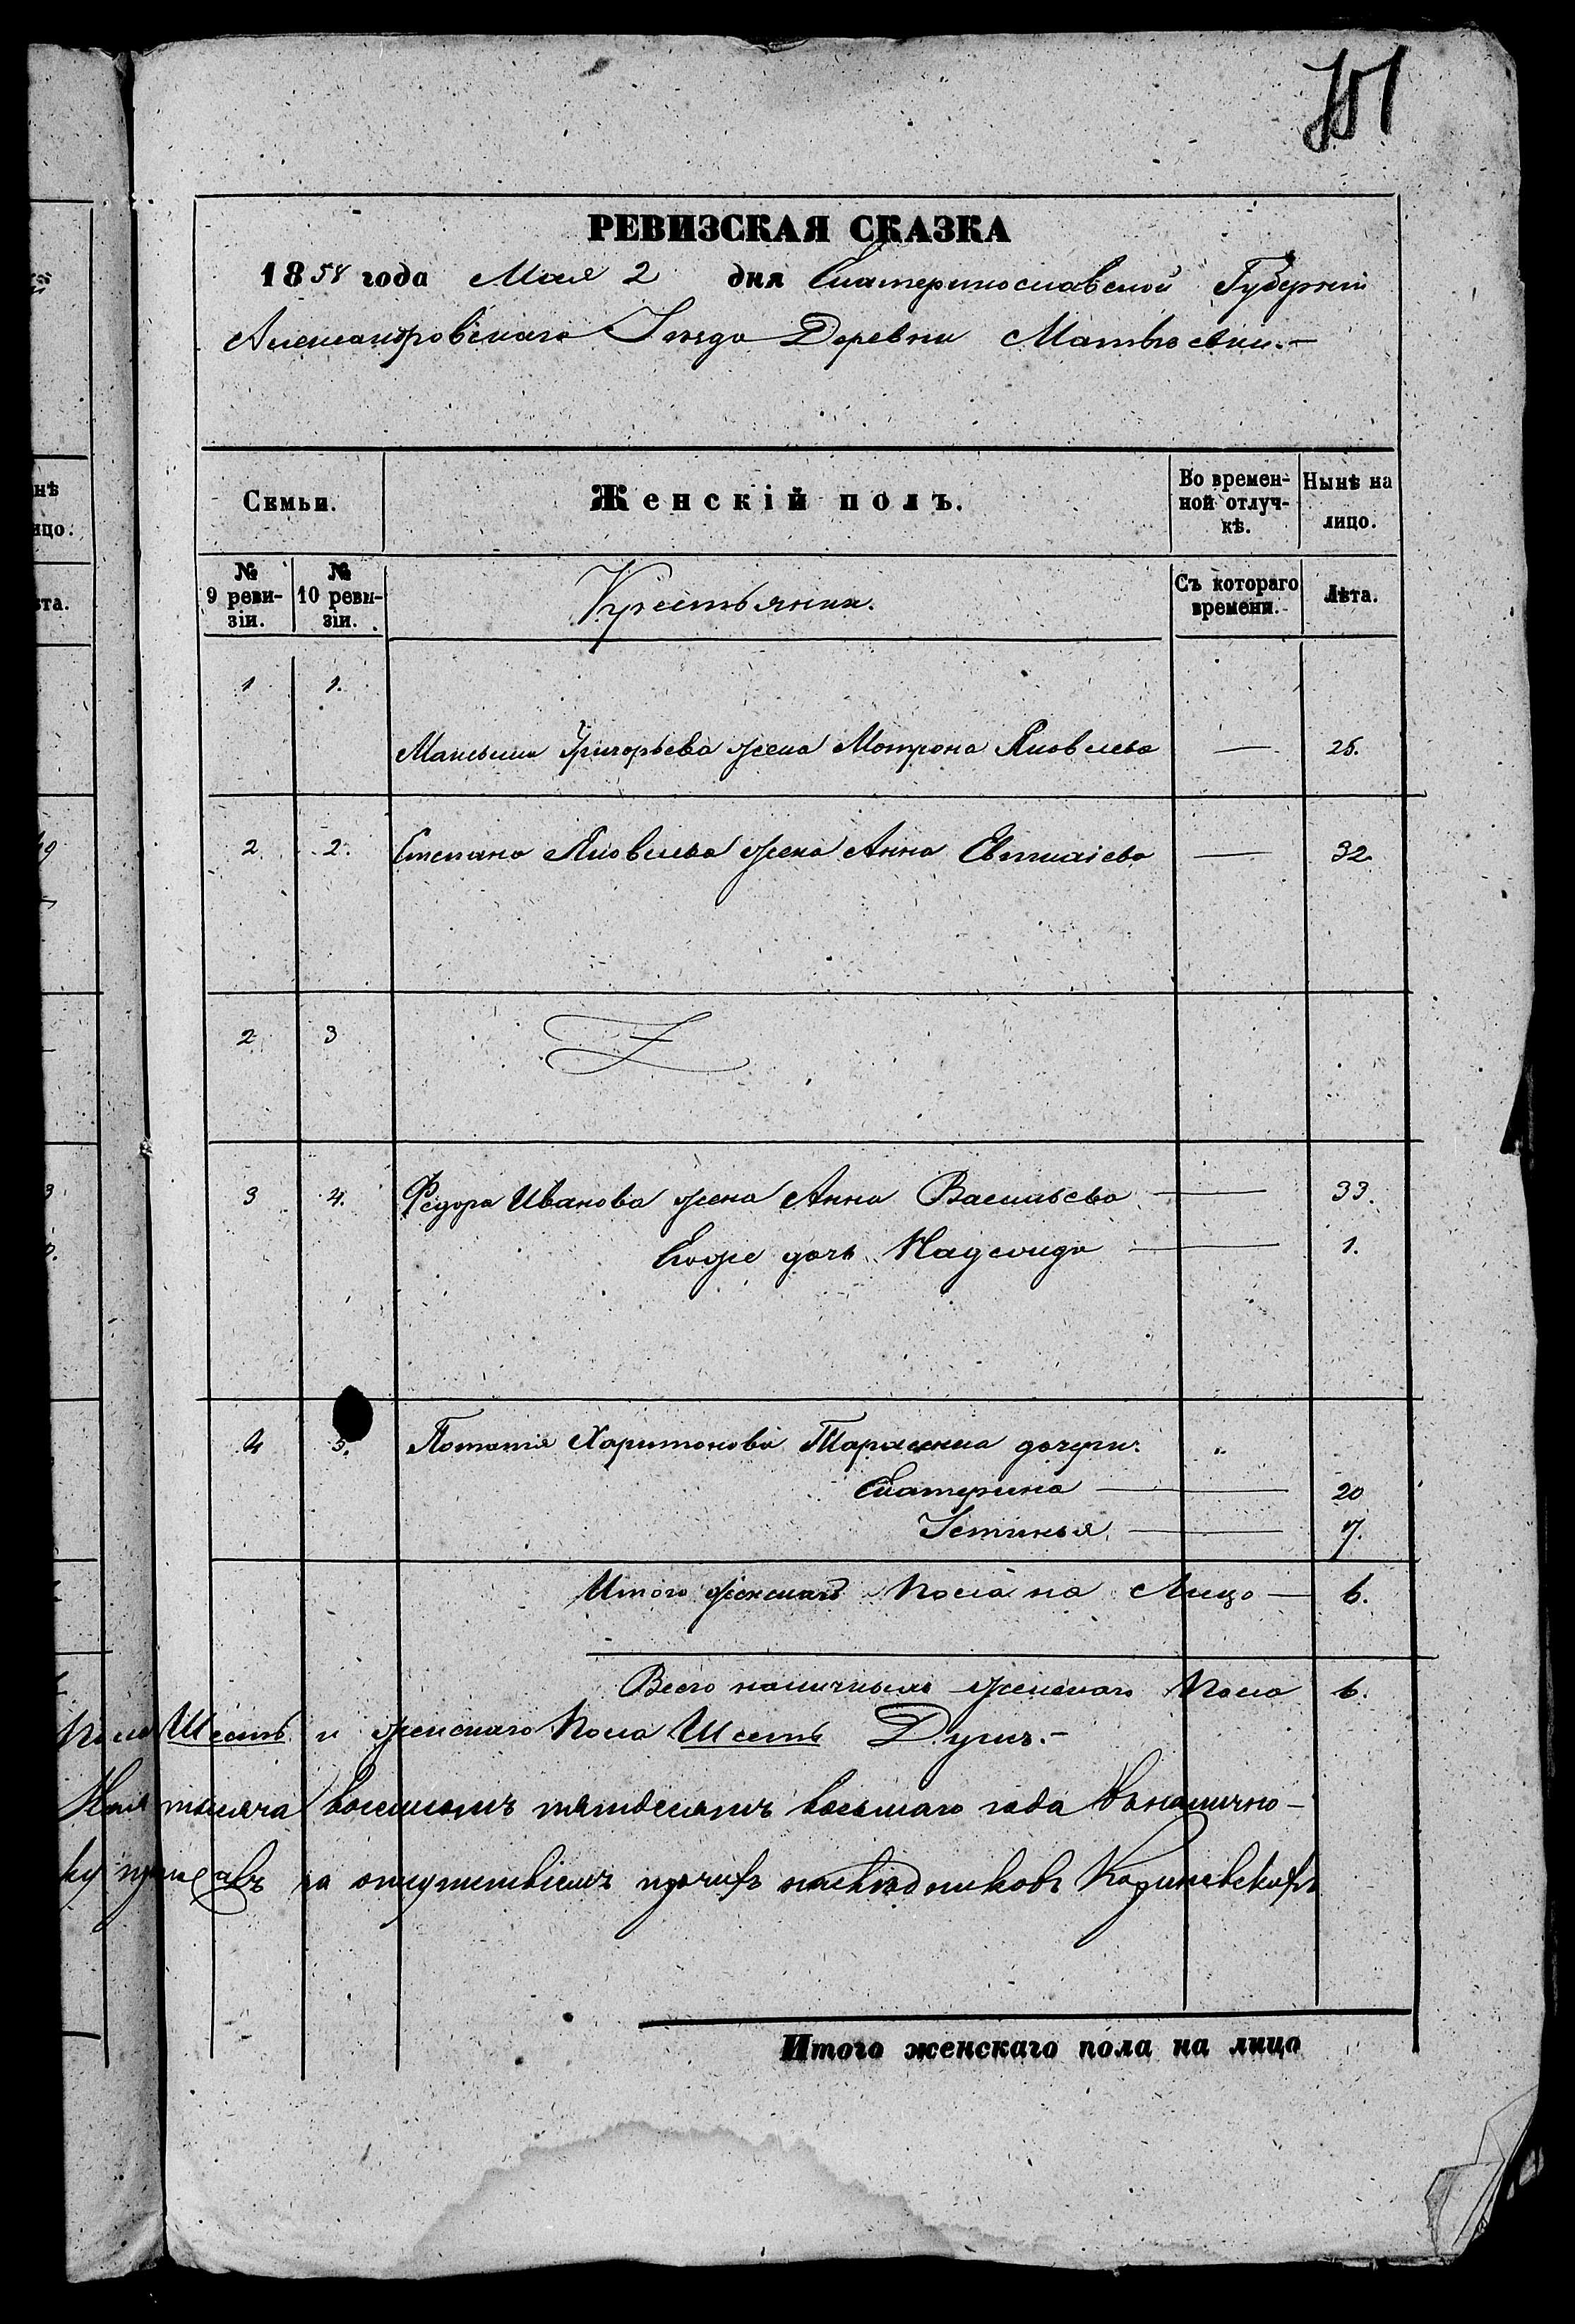 РЕВИЗСКАЯ СКАЗКА
1858 года Мая 2 дня Екатеринославской Губерніи
Александровскаго Уезда Деревни Матвѣевки.—
Семьи.
Женскій полъ.
Во времен-
ной отлуч-
кѣ.
Нынѣ на
лицо.
№
9 реви-
зіи.
№
10 реви-
зіи.
Крестьянки.
Съ котораго
времени.
Лѣта.
1 1.
Максима Григорьева жена Мотрона Яковлева — 25.
2. 2. Степана Яковлева жена Анна — 32.
2. 3
3 4. Федора Иванова жена Анна Васильева — 33.
Егоже дочь — 1.
4 5. Потапія Харитонова Тарасенка дочери. „
Екатерина — 20
Устинья — 7.
Итого женскаго пола на Лицо — 6.
Всего наличныхъ женскаго пола 6.
пола Шесть и женскаго пола Шесть Душъ.—
тысяча восемьсотъ пятьдесятъ восьмаго года
за отсутствіемъ прочихъ наслѣдниковъ
Итого женскаго пола на лицо